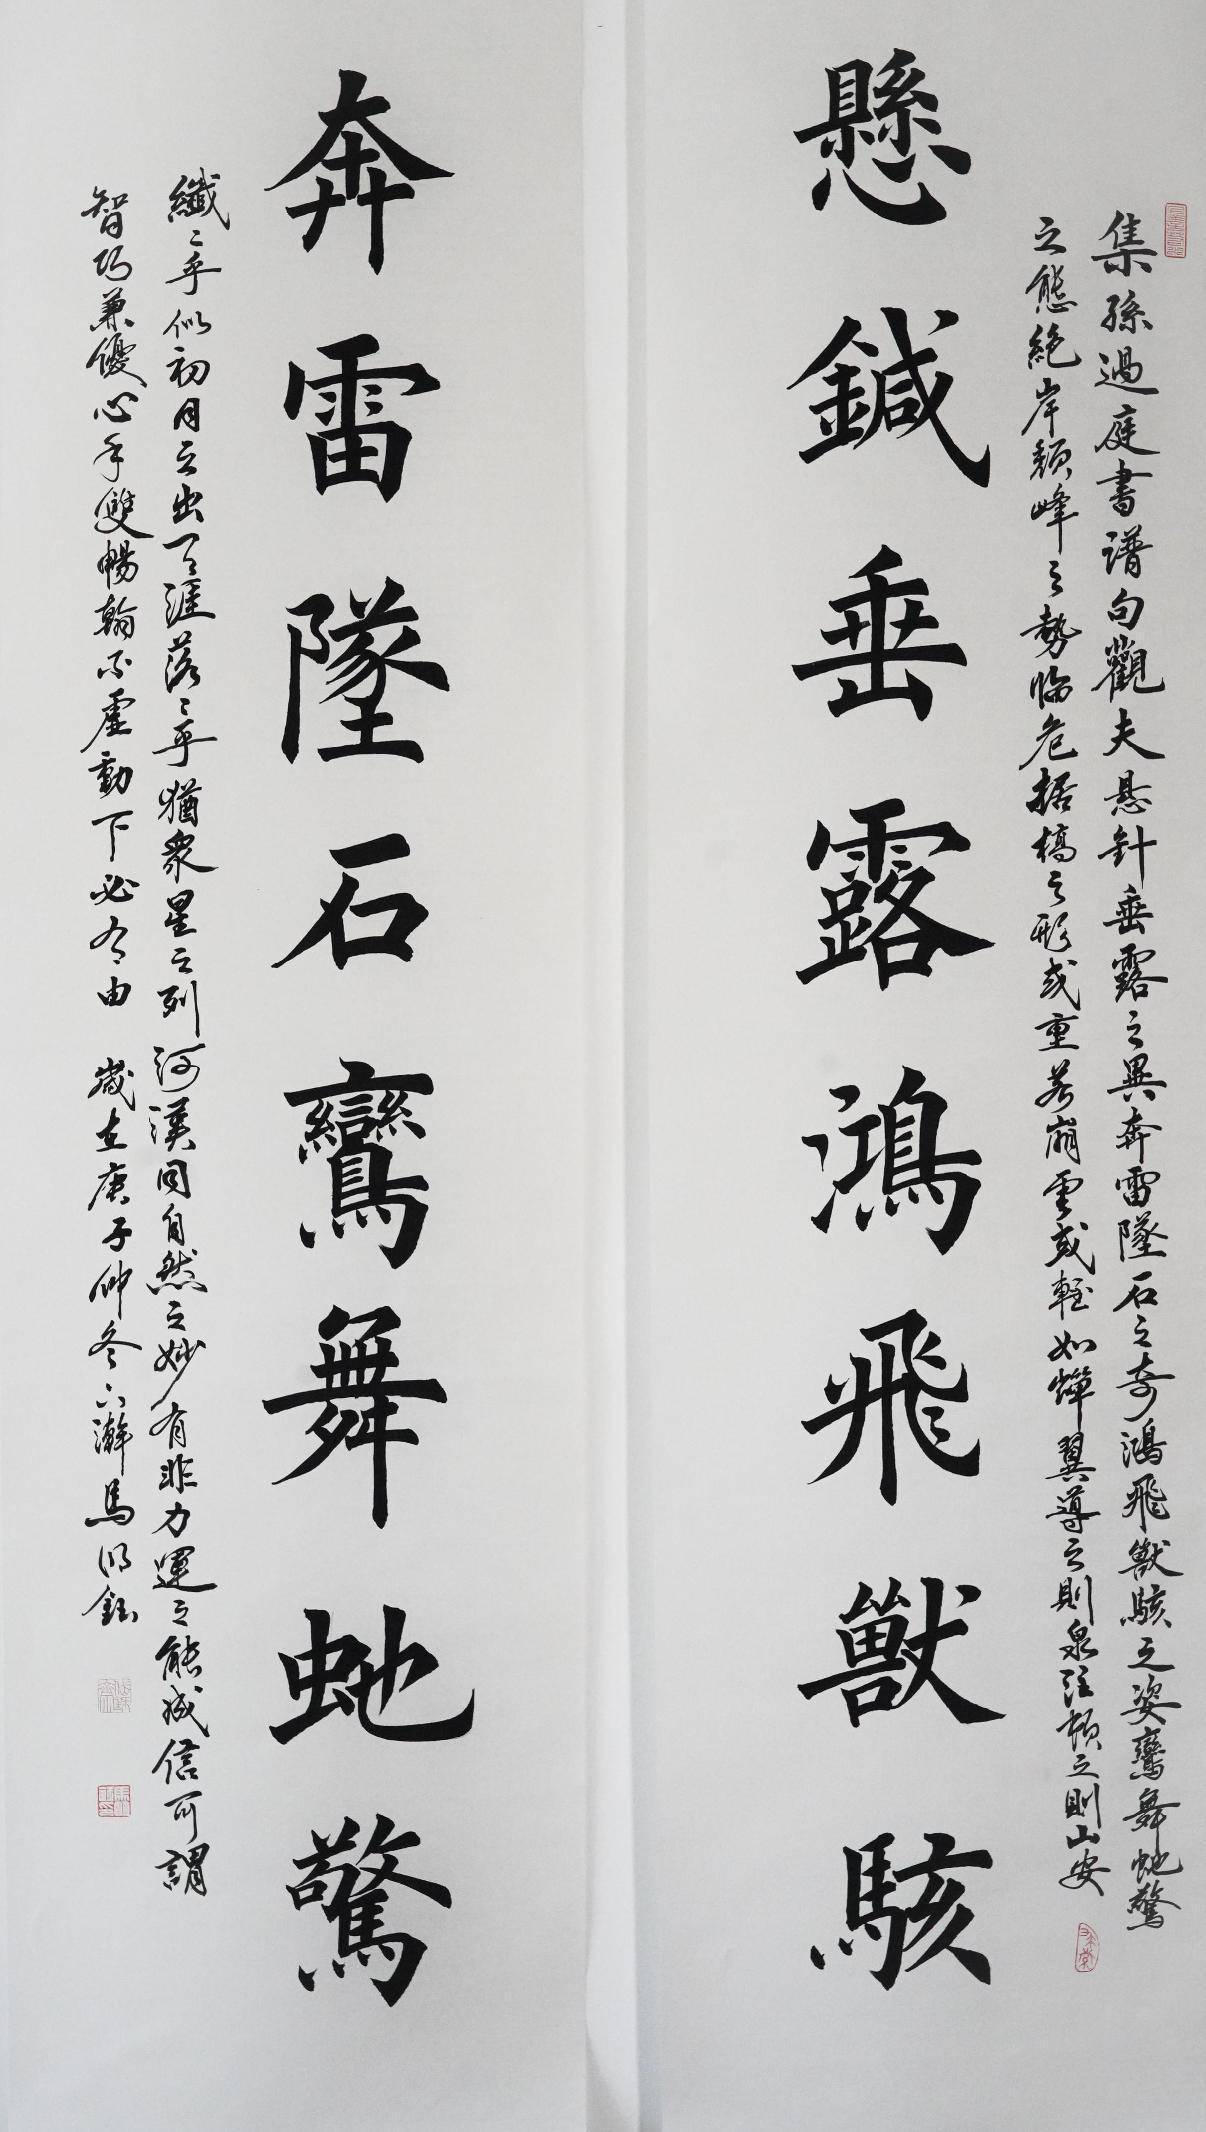 集孫過庭書譜句觀夫懸針垂露之異奔雷墜石之奇鴻飛獸駭之姿鸞舞虵驚
之態絕岸頹峰之勢臨危據槁之形或重若崩雲或輕如蟬翼導之則泉注頓之則山安
懸鍼垂露鴻飛獸駭
奔雷墜石鸞舞虵驚
纖〻乎似初月之出天涯落〻乎猶衆星之列河漢同自然之妙有非力運之能成信可謂
智巧兼優心手雙暢翰不虛動下必有由 歲在庚子仲冬六瀚馬明鈺